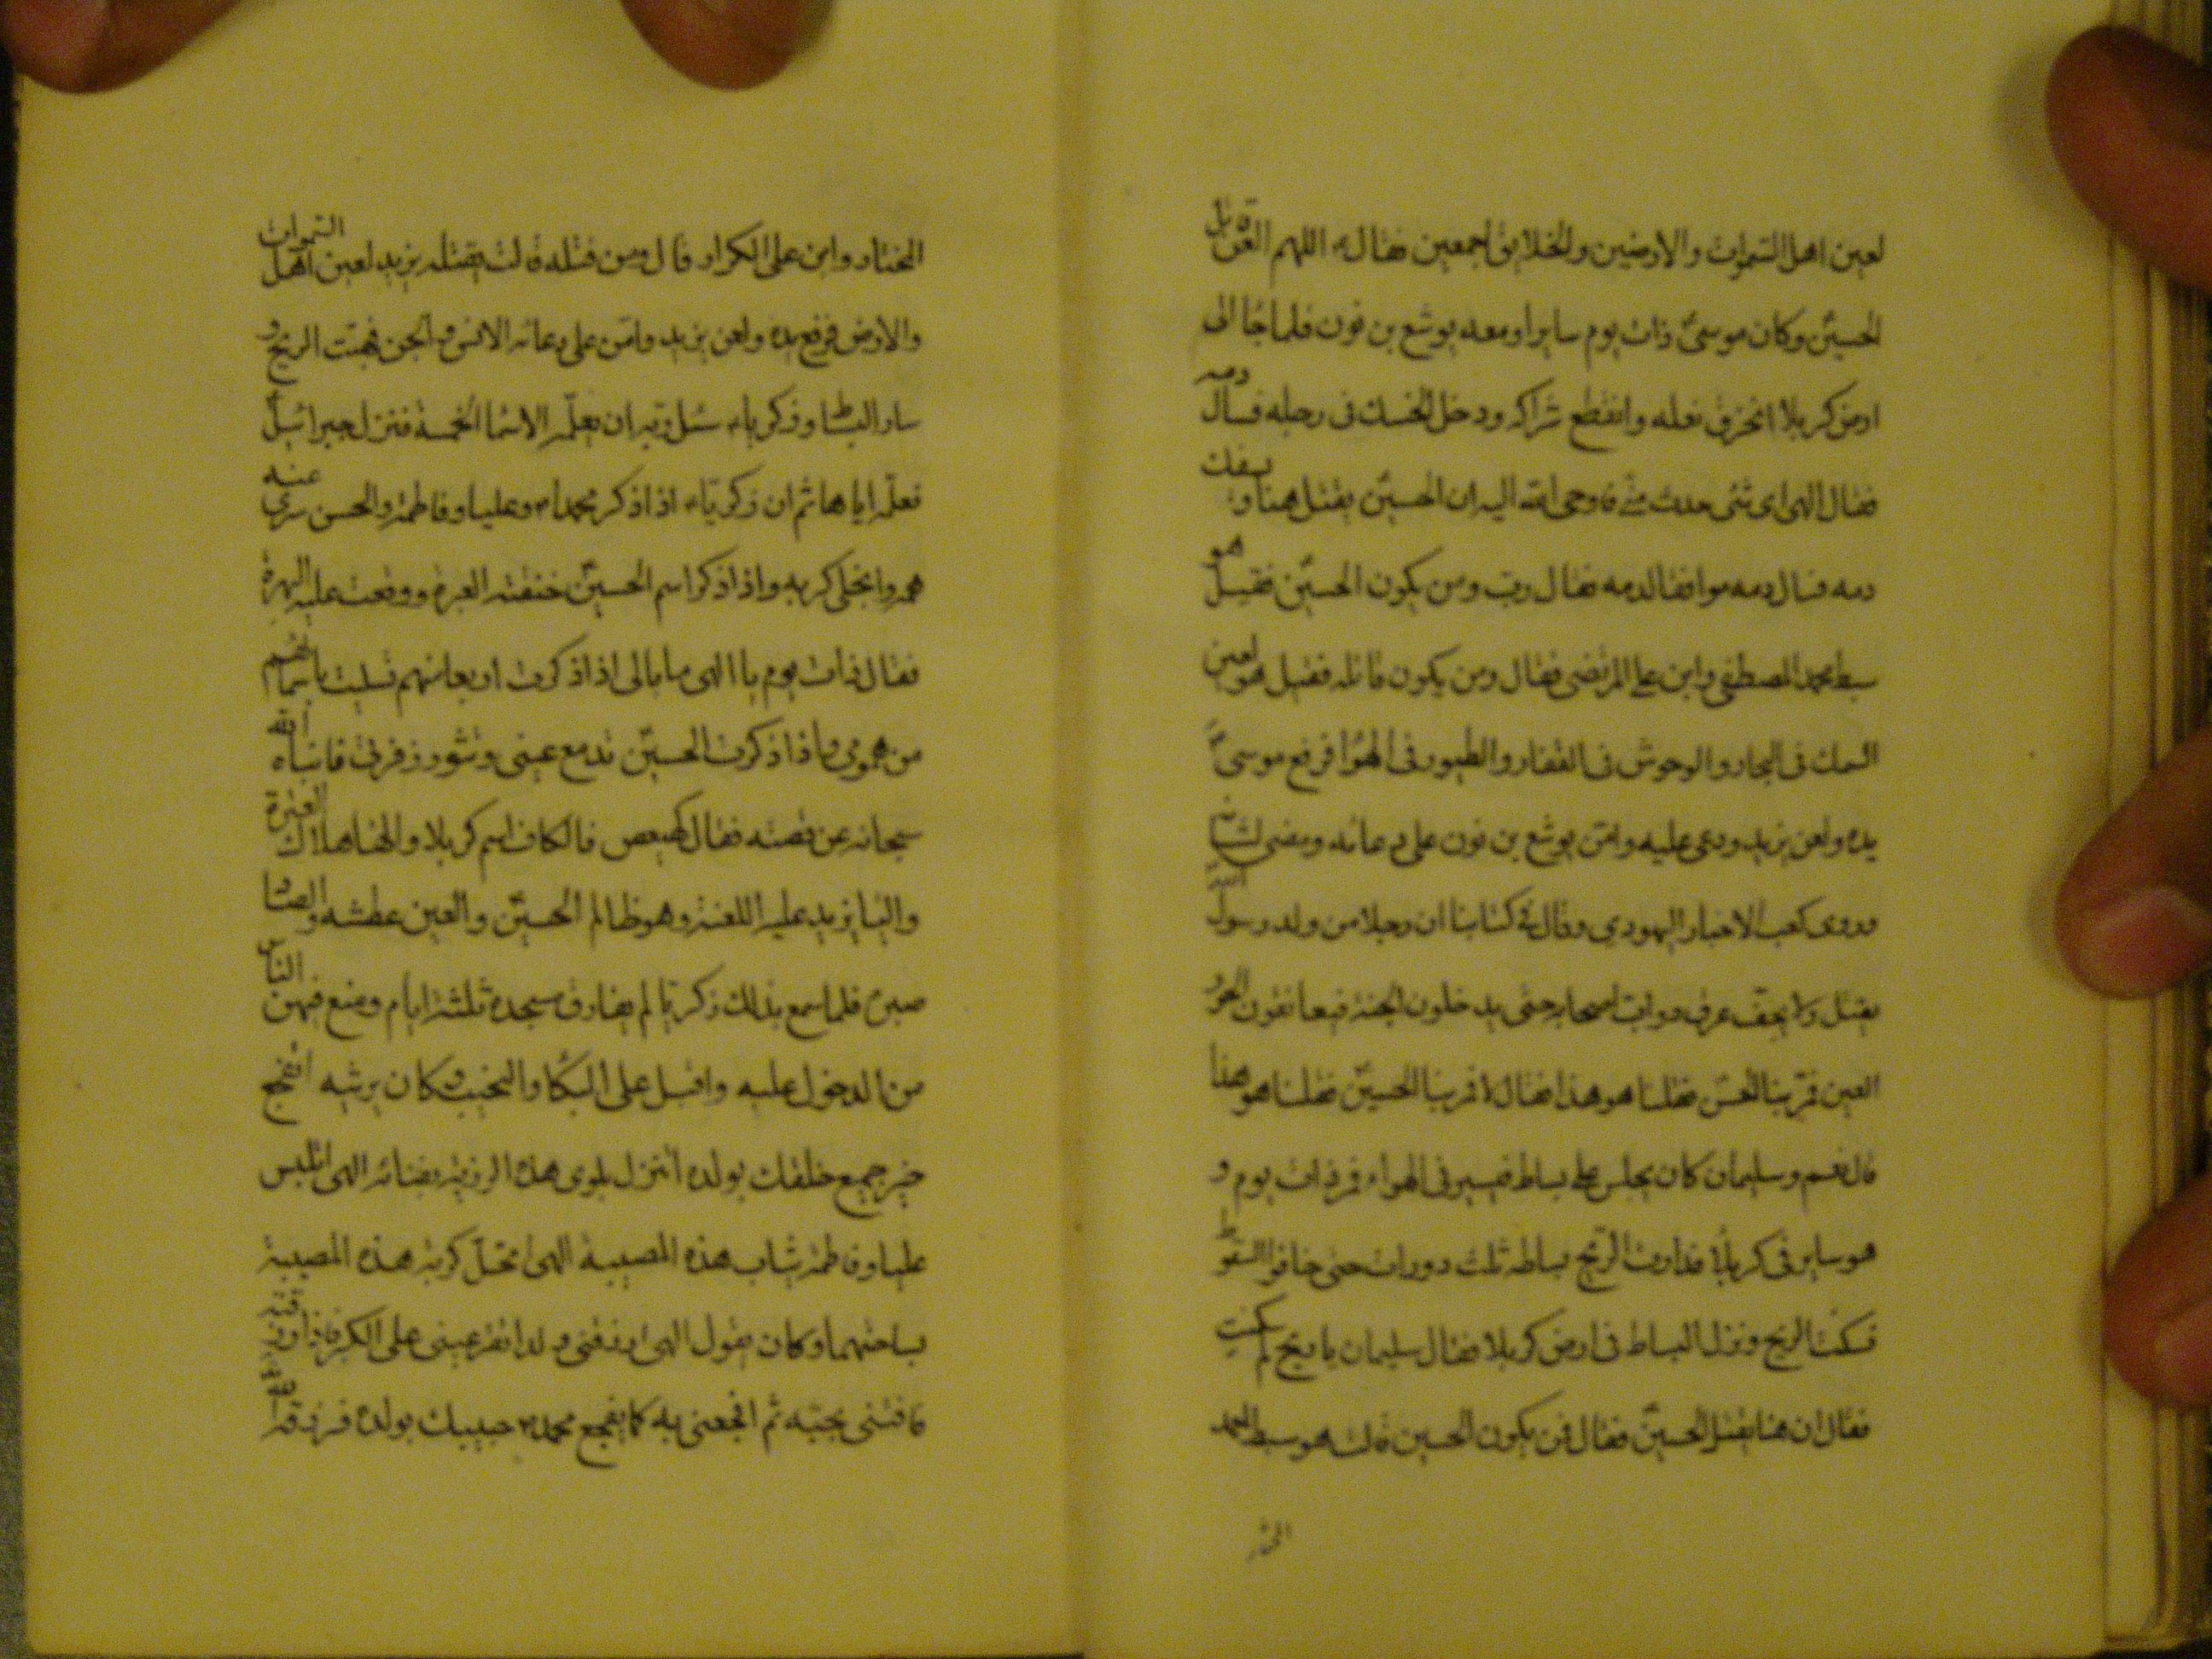 لعين اهل السموات والارضين والخلايق اجمعين فقال ع اللهم العن قاتل
الحسين وكان موسى ذات يوم سايرا ومعه يوشع بن نون فلما جا الى
ارض كربلا انخرق نعله وانقطع شراكه ودخل الخسك فى رجليه فسال دمه
فقال الهى اى شئ حدث منى فاوحى الله اليه ان الحسين يقتل هنا و يسفك
دمه فسال دمه موافقا لدمه فقال رب ومن يكون الحسين فقيل هو
سبط محمد المصطفى وابن على المرتضى فقال ومن يكون قاتله فقيل هو لعين
السمك فى البحار والوحوش فى القفار والطيور فى الهوا فرفع موسى
يده ولعن يزيد ودعى عليه وامن يوشع بن نون على دعائه ومضى لشانه
وروى كعب الاحبار اليهودى وقال فى كتابنا ان رجلا من ولد رسول الله
يقتل ولا يجف عرق دواب اصحابه حتى يدخلون الجنة فيعانقون الحور
العين فمر بنا الحسن فقلنا هو هذا فقال لا فمر بنا الحسين فقلنا هو هذا
قال نعم وسليمان كان يجلس على بساط فيسير فى الهواء فمر ذات يوم و
هو ساير فى كربلا فدارت الريح بساطه ثلث دورات حتى خافوا السقوط
فسكنت الريح ونزل البساط فى ارض كربلا فقال سليمان يا ريح لم سكنت
فقال ان هنا يقتل الحسين فقال فمن يكون الحسين قالت هو سبط احمد
المختار
المختار وابن على الكرار قال ومن قتله قالت يقتله يزيد لعين اهل السموات
والارض فرفع يده ولعن يزيد وامن على دعائه الانس والجن فهبت الريح و
سار البساط وزكريا ع سئل ربه ان يعلمه الاسما الخمسة فنزل جبرائيل
فعلمه اياها ثم ان زكريا ع اذا ذكر محمدا ص وعليا وفاطمة والحسن سرى عنه
همه وانجلى كربه واذا ذكر اسم الحسين خنقته العبرة ووقعت عليه البهرة
فقال ذات يوم يا الهى ما بالى اذا ذكرت اربعا منهم تسليت باسمائهم
من همومى واذا ذكرت الحسين تدمع عينى وتثور زفرتى فانباه الله
سبحانه عن قصته فقال كهيعص فالكاف اسم كربلا والها هلاك العترة
واليا يزيد عليه اللعنة وهو ظالم الحسين والعين عطشه والصاد
صبره فلما سمع بذلك زكريا لم يفارق مسجده ثلثة ايام ومنع فيهن الناس
من الدخول عليه واقبل على البكا والنحيب وكان يرثيه اتفجع
خير جميع خلقك بولده اتنزل بلوى هذه الرزية بفنائه الهى اتلبس
عليا وفاطمة ثياب هذه المصيبة الهى اتحل كربة هذه المصيبة
بساحتهما وكان يقول الهى ارزقنى ولدا تقر عينى على الكبر فاذا رزقتنيه
فافتنى بحبه ثم افجعنى به كما يفجع محمد ص حبيبك بولده فرزقه